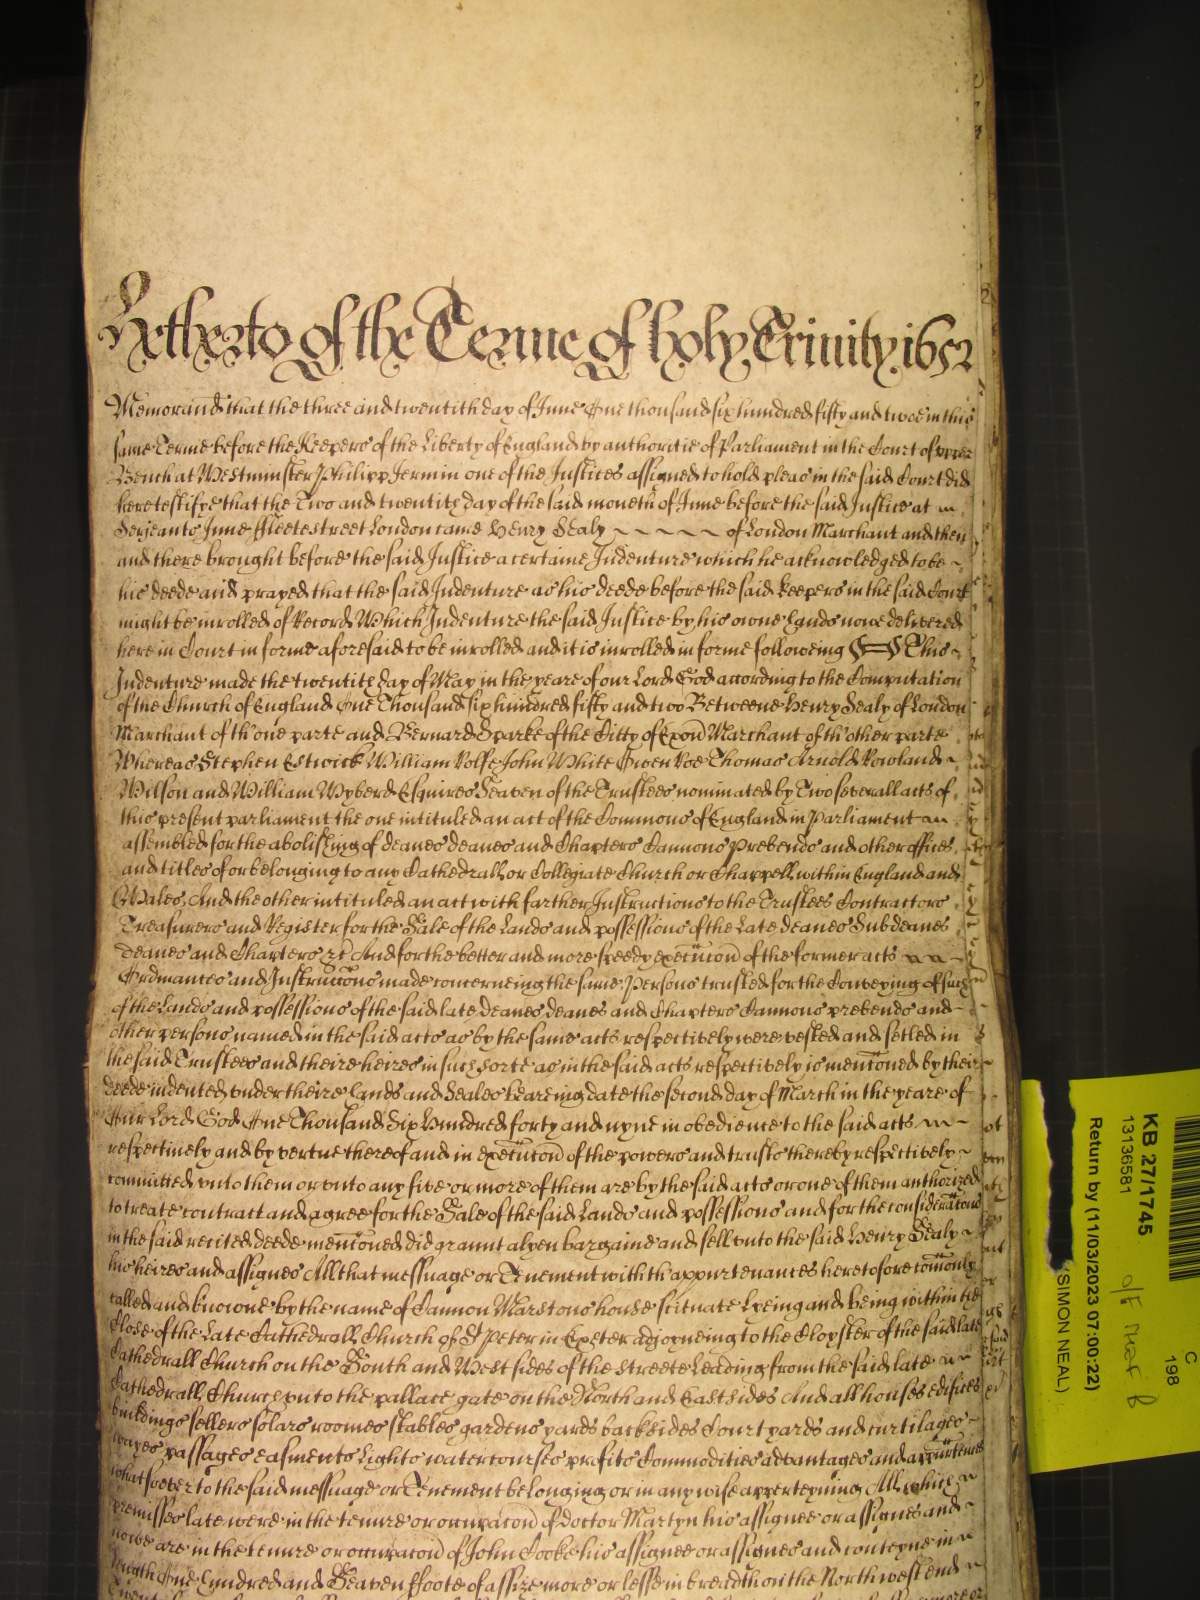 Yet hereto of the Terme of holy Trinity 1652
Memorand that the three and twentith day of June One thousand six hundred fifty and twoe in this
same Terme before the Keepers of the Liberty of England by authoritie of Parliament in the Court of upper
Bench at Westminster Philipp Jermin one of the Justices assigned to hold pleas in the said Court did
here testifye that the Two and twentith day of the said moneth of June before the said Justice at
Serjeants Inne Fleetestreet London came Henry Sealy ~ ~ ~ ~ ~ of London Marchant and then
and there brought before the said Justice a certaine Indenture which he acknowledged to be ~
his deede and prayed that the said Indenture as his deede before the said keepers in the said Court
might be inrolled of Record Which Indenture the said Justice by his owne hands nowe delivered
here in Court in forme aforesaid to be inrolled and it is inrolled in forme followeing This ~
Indenture made the twentith day of May in the yeare of our Lord God according to the Computation
of the Church of England One Thousand six hundred fifty and two Betweene Henry Sealy of London
Marchant of th'one parte and Bernard Sparke of the Citty of Exon Marchant of th'other parte
Whereas Stephen Estwick William Rolfe John White Owen Roe Thomas Arnold Rowland ~
Wilson and William Wyberd Esquires Seaven of the Trustees nominated by Two severall acts of
this present parliament the one intituled an act of the Commons of England in Parliament
assembled for the abolishing of deanes deanes and Chapters Cannons Prebends and other offices
and titles of or belonging to any Cathedrall or Collegiate Church or Chappell within England and
Wales And the other intituled an act with farther Instructions to the Trustees Contractors
Treasurers and Register for the Sale of the Lands and possessions of the Late deanes Subdeanes
Deanes and Chapters &c And for the better and more speedy execucon of the former acts
Ordinances and Instruccons made concerneing the same Persons trusted for the Conveying of such
of the Lands and possessions of the said late Deanes Deanes and Chapters Cannons prebends and
other persons named in the said acts as by the same acts respectively were vested and setled in
the said Trustees and theire heires in such sorte as in the said acts respectively is mencioned by their
deede indented under theire hands and Seales beareing date the second day of March in the yeare of
Our Lord God One Thousand Six Hundred forty and nyne in obedience to the said acts
respectively and by vertue thereof and in execucon of the powers and trusts thereby respectively ~
committed unto them or unto any five or more of them are by the said acts or one of them authorized
to treate contract and agree for the Sale of the said Lands and possessions and for the consideracons
in the said recited deede mencioned did graunt alyen bargaine and sell unto the said Henry Sealy ~
his heires and assignes All that messuage or Tenement with th'appurtenances heretofore comonly
called and knowne by the name of Cannon Marstons house scituate lyeing and being within the
Close of the Late Cathedrall Church of St Peter in Exeter adjoyneing to the Cloyster of the said late
Cathedrall Church on the South and West sides of the streete Leading from the said late
Cathedrall Church unto the pallace gate on the North and East sides And all houses edifices
buildings sellers solars roomes stables gardens yards backsides Court yards and curtilages ~
wayes passages easments Lights watercourses profits Commodities advantages and appurtenncs
whatsoever to the said messuage or Tenement belonging or in any wise apperteyning All which
premisses late were in the tenure or occupacon of doctor Martyn his assignee or assignes and ~
nowe are in the tenure or occupacon of John Cooke his assignee or assignes and conteyne in
length One hundred and Seaven ffoote of assize more or lesse in breadth on the North west end
KB 27/1745
13136581
Return by (11/03/2023 07:00:22)
(SIMON NEAL)
C
198